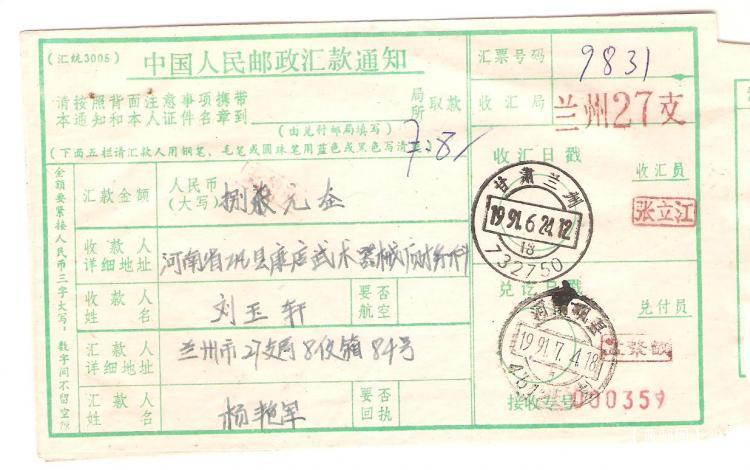 (汇统3005)
中国人民邮政汇款通知
请按照背面注意事项携带
本通知和本人证件名章到
局
所
取款
(由兑付邮局填写)
(下面五栏请汇款人用钢笔、毛笔或圆珠笔用蓝色或黑色写清
7281
金额要紧接人民币三字大写:数字间不留空隙
汇款金额
人民币
(大写)
捌拾元整
收款人
详细地址
河南省巩县康店武术器械
收款人
姓名
刘玉轩
要否
航空
汇款人
详细地址
兰州市27支局8信箱84号
汇款人
姓名
杨艳军
要否
回执
汇票号码
9831
收汇局
兰州27支
收汇日戳
收汇员
甘肃兰州
1991.6.24.12
18
732750
张立江
兑讫日戳
兑付员
河南巩县
1991.7.4.18
接收专号
000359